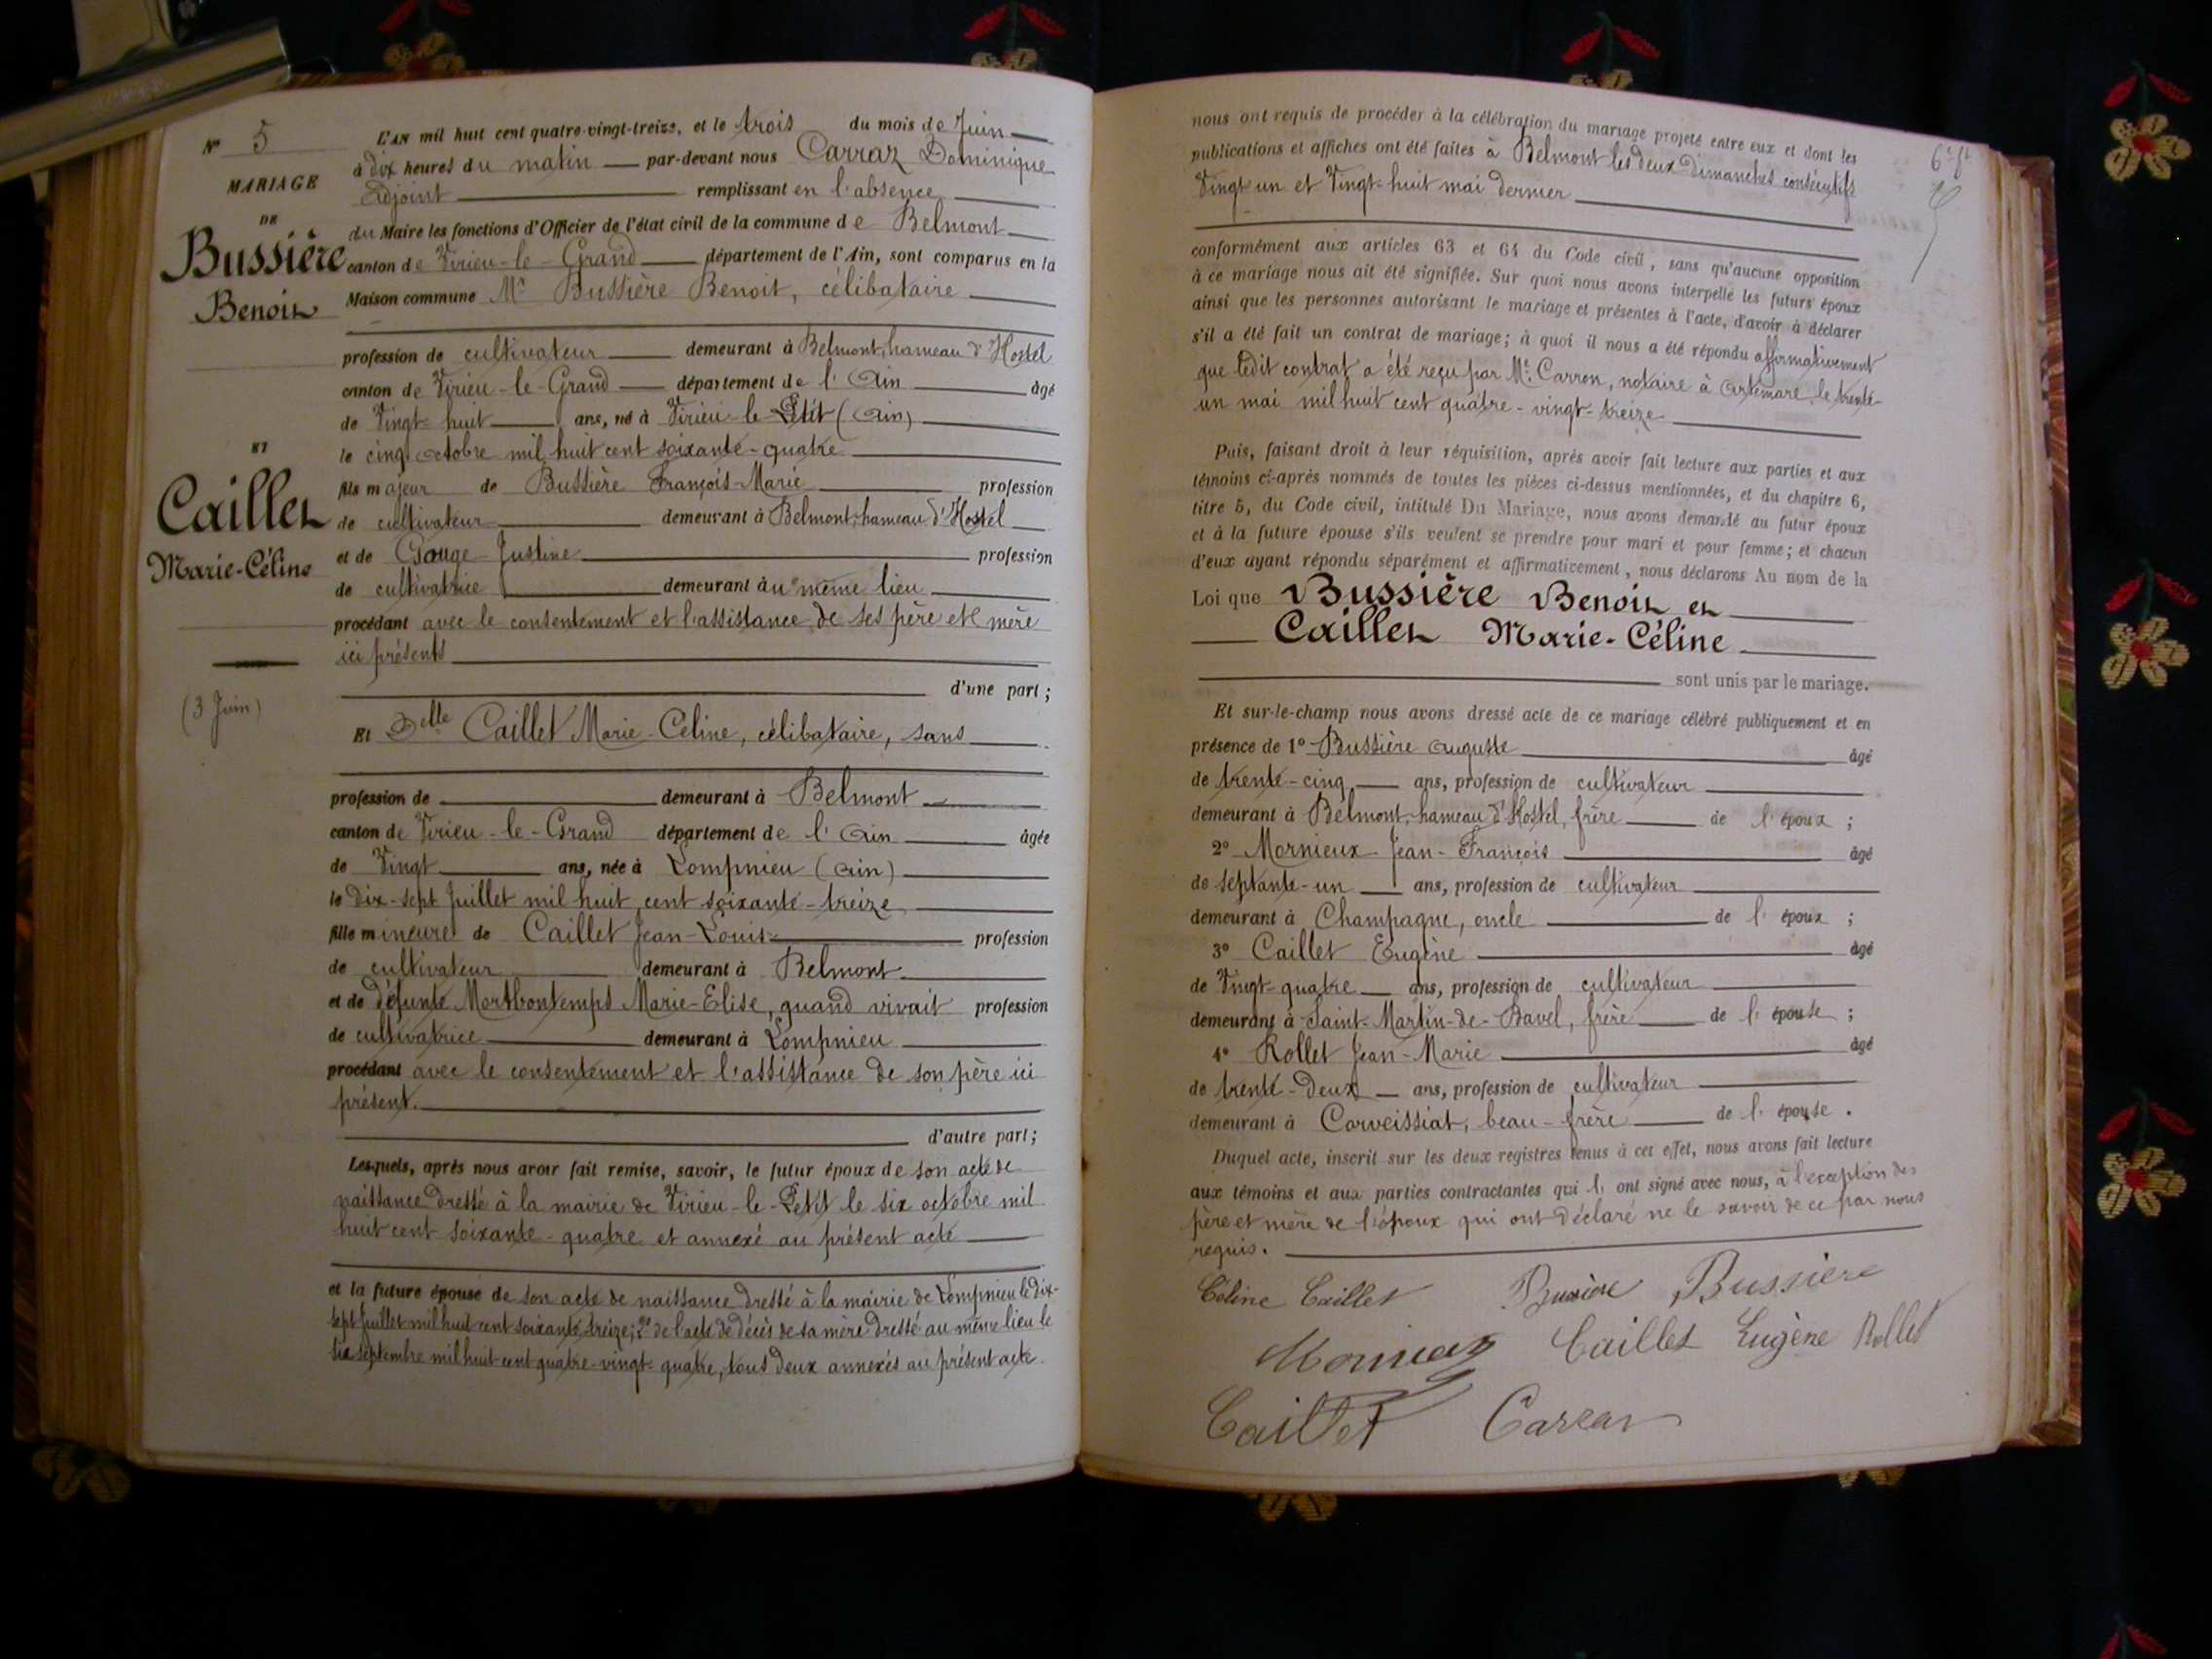 N° 5
MARIAGE
DE
Bussière
Benoit
ET
Caillet
Marie-Céline
(3 Juin)
L'AN mil huit cent quatre-vingt-treize, et le trois du mois de Juin
à dix heures du matin par-devant nous Carraz Dominique
Adjoint remplissant en l'absence
du Maire les fonctions d'Officier de l'état civil de la commune de Belmont
canton de Virieu-le-Grand département de l'Ain, sont comparus en la
Maison commune Mr Bussière Benoit, célibataire
profession de cultivateur demeurant à Belmont, hameau d'Hostel
canton de Virieu-le-Grand département de l'Ain âgé
de Vingt-huit ans, né à Virieu-le-Petit (Ain)
le cinq octobre mil huit cent soixante-quatre
fils majeur de Bussière François-Marie profession
de cultivateur demeurant à Belmont, hameau d'Hostel
et de Gouge Justine profession
de cultivatrice demeurant àu même lieu
procédant avec le consentement et l'assistance de ses père et mère
ici présents
d'une part;
Et Delle Caillet Marie-Céline, célibataire, sans
profession de demeurant à Belmont
canton de Virieu-le-Grand département de l'Ain âgée
de Vingt ans, née à Lompnieu (Ain)
le dix-sept Juillet mil huit cent soixante-treize
fille mineure de Caillet Jean-Louis profession
de cultivateur demeurant à Belmont
et de défunte Mortbontemps Marie-Elise, quand vivait profession
de cultivatrice demeurant à Lompnieu
procédant avec le consentement et l'assistance de son père ici
présent.
d'autre part;
Lesquels, après nous avoir fait remise, savoir, le futur époux de son acte de
naissance dressé à la mairie de Virieu-le-Petit le six octobre mil
huit cent soixante-quatre et annexé au présent acte
et la future épouse de son acte de naissance dressé à la mairie de Lompnieu le dix-
sept Juillet mil huit cent soixante treize; 2° de l'acte de décès de sa mère dressé au même lieu le
six septembre mil huit cent quatre-vingt-quatre, tous deux annexés au présent acte.
nous ont requis de procéder à la célébration du mariage projeté entre eux et dont les
publications et affiches ont été faites à Belmont les deux dimanches consécutifs
Vingt un et Vingt-huit mai dernier
conformément aux articles 63 et 64 du Code civil, sans qu'aucune opposition
à ce mariage nous ait été signifiée. Sur quoi nous avons interpellé les futurs époux
ainsi que les personnes autorisant le mariage et présentes à l'acte, d'avoir à déclarer
s'il a été fait un contrat de mariage; à quoi il nous a été répondu affirmativement
que ledit contrat a été reçu par Me Carron, notaire à Artemare, le trente-
un mai mil huit cent quatre-vingt-treize
Puis, faisant droit à leur réquisition, après avoir fait lecture aux parties et aux
témoins ci-après nommés de toutes les pièces ci-dessus mentionnées, et du chapitre 6,
titre 5, du Code civil, intitulé Du Mariage, nous avons demandé au futur époux
et à la future épouse s'ils veulent se prendre pour mari et pour femme; et chacun
d'eux ayant répondu séparément et affirmativement, nous déclarons Au nom de la
Loi que Bussière Benoit et
Caillet Marie-Céline
sont unis par le mariage.
Et sur-le-champ nous avons dressé acte de ce mariage célébré publiquement et en
présence de 1° Bussière Auguste âgé
de trente-cinq ans, profession de cultivateur
demeurant à Belmont, hameau d'Hostel, frère de l'époux;
2° Mornieux Jean-François âgé
de septante-un ans, profession de cultivateur
demeurant à Champagne, oncle de l'époux;
3° Caillet Eugène âgé
de Vingt-quatre ans, profession de cultivateur
demeurant à Saint-Martin-de-Bavel, frère de l'épouse;
4° Rollet Jean-Marie âgé
de trente-deux ans, profession de cultivateur
demeurant à Corveissiat, beau-frère de l'épouse.
Duquel acte, inscrit sur les deux registres tenus à cet effet, nous avons fait lecture
aux témoins et aux parties contractantes qui l'ont signé avec nous, à l'exception des
père et mère de l'époux qui ont déclaré ne le savoir de ce par nous
requis.
Céline Caillet Bussière Bussière
Caillet Eugène Rollet
Caillet Carraz